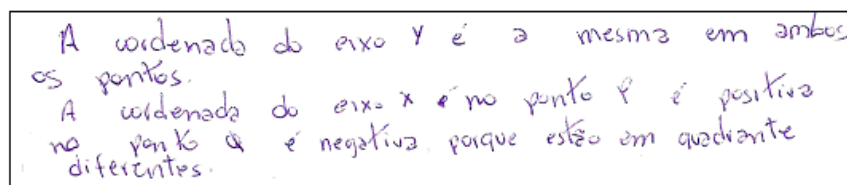 A cordenada do eixo Y é a mesma em ambos
os pontos.
A cordenada do eixo x é no ponto P é positiva
no ponto Q é negativa porque estão em quadrante
diferentes.